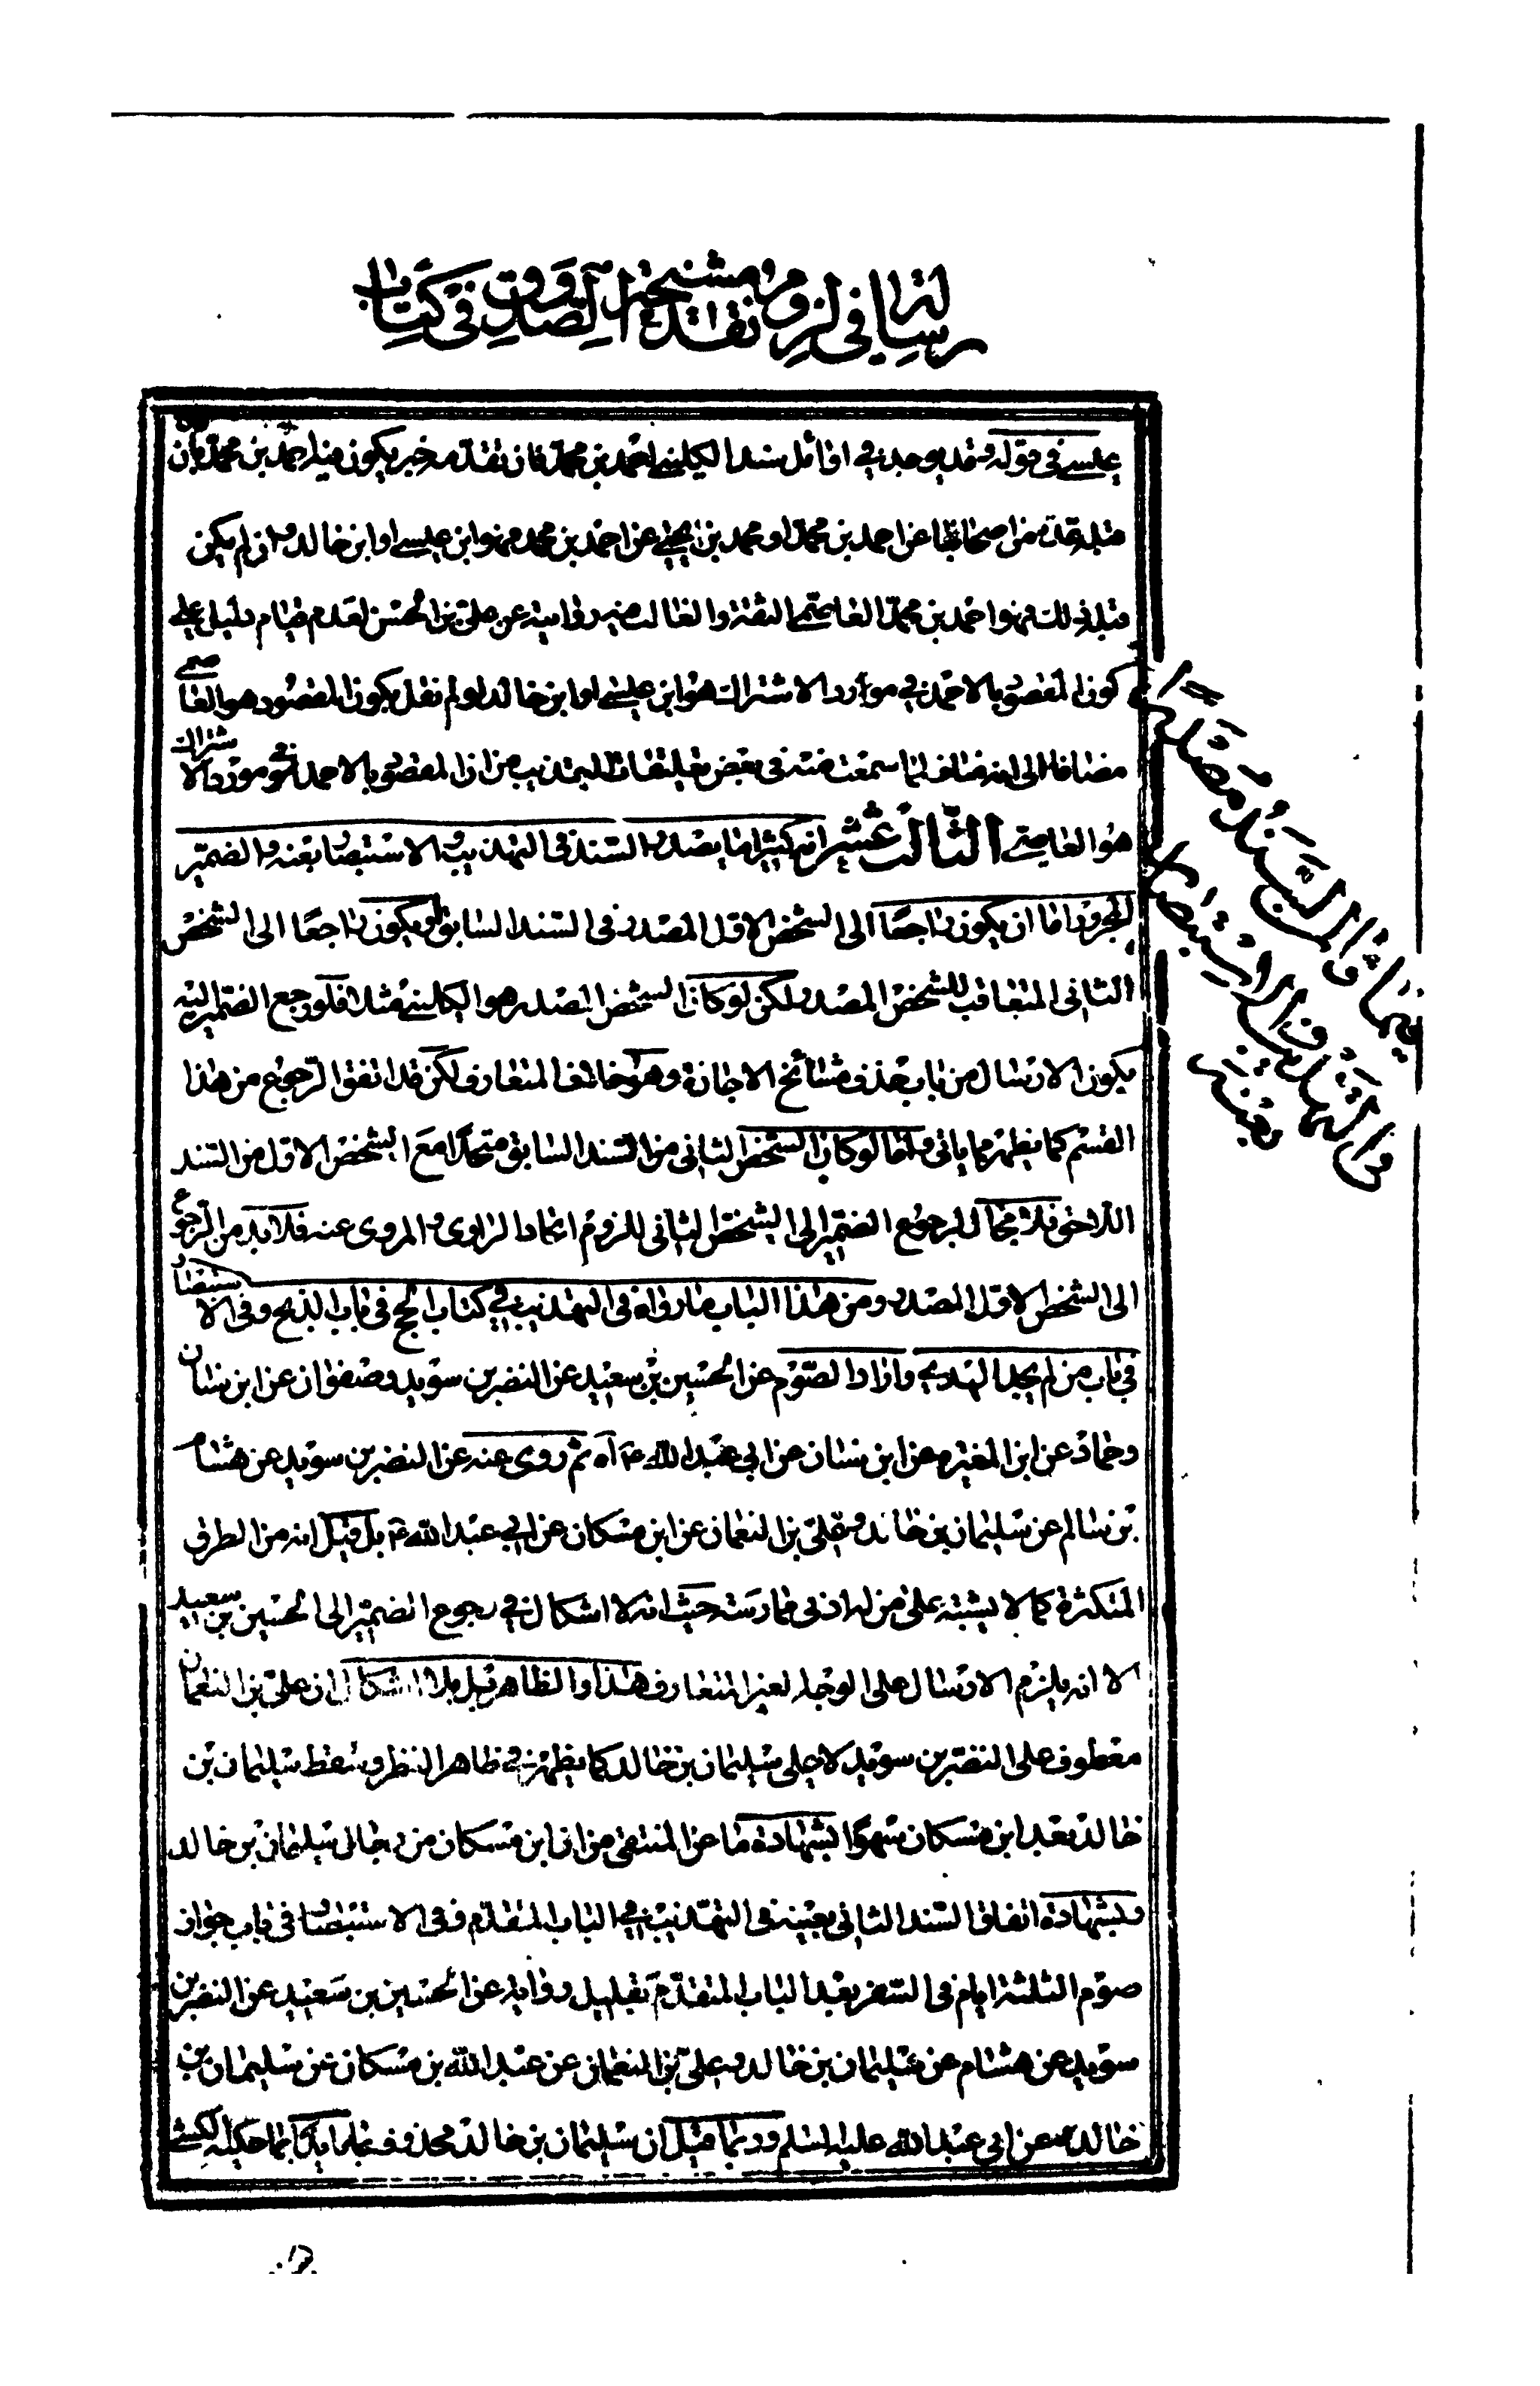 رسالة في لزوم نقد مشيخة الصدوق في كتاب
عيسى في قوله وقد يوجد في اوائل سند الكليني احمد بن محمد فان تقدمه خبر يكون فيه احمد بن محمد بان
قبله عدة من اصحابنا عن احمد بن محمد او محمد بن يحيى عن احمد بن محمد فهو ابن عيسى او ابن خالد وان لم يكن
قبله ذلك فهو احمد بن محمد العاصمي الثقة والغالب فيه روايته عن علي بن الحسن لعدم قيام دليل على
كون المقصود بالاحمد في موارد الاشتراك هو ابن عيسى او ابن خالد لو لم نقل بكون المقصود هو العاصمي
مضافا الى انه مناف لما سمعت منه في بعض تعليقات التهذيب من ان المقصود بالاحمد في مورد الاشتراك
هو العاصمي الثالث عشر انه كثيرا ما يصدر السند في التهذيب والاستبصار بعنه والضمير
المجرور اما ان يكون راجعا الى الشخص الاول المصدر في السند السابق او يكون راجعا الى الشخص
الثاني المتعاقب للشخص المصدر لكن لو كان الشخص المصدر هو الكليني مثلا فلو رجع الضمير اليه
يكون الارسال من باب حذف مشائخ الاجازة وهو خالف المتعارف لكن قد اتفق الرجوع من هذا
القسم كما يظهر مما ياتي واما لو كان الشخص الثاني من السند السابق متحدا مع الشخص الاول من السند
اللاحق فلا مجال لرجوع الضمير الى الشخص الثاني للزوم اتحاد الراوي والمروي عنه فلا بد من الرجوع
الى الشخص الاول المصدر ومن هذا الباب ما رواه في التهذيب في كتاب الحج في باب الذبح وفي الاستبصار
في باب من لم يجد الهدي واراد الصوم عن الحسين بن سعيد عن النضر بن سويد وصفوان عن ابن سنان
وحماد عن ابن المغيره عن ابن سنان عن ابي عبد الله ع آه ثم روى عنه عن النضر بن سويد عن هشام
بن سالم عن سليمان بن خالد وعلي بن النعمان عن ابن مسكان عن ابي عبد الله ع بل قيل انه من الطرق
المتكثرة كما لا يشتبه على من له ادنى ممارسة حيث انه لا اشكال في رجوع الضمير الى الحسين بن سعيد
الا انه يلزم الارسال على الوجه الغير المتعارف هذا والظاهر بل بلا اشكال ان علي بن النعمان
معطوف على النضر بن سويد لا على سليمان بن خالد كما يظهر في ظاهر النظر وسقط سليمان بن
خالد بعد ابن مسكان سهوا بشهادة ما عن المنتقى من ان ابن مسكان من رجال سليمان بن خالد
وبشهادة اتفاق السند الثاني بعينه في التهذيب في الباب المتقدم وفي الاستبصار في باب جواز
صوم الثلثة ايام في السفر بعد الباب المتقدم بقليل رواية عن الحسين بن سعيد عن النضر بن
سويد عن هشام عن سليمان بن خالد وعلي بن النعمان عن عبد الله بن مسكان عن سليمان بن
خالد عن ابي عبد الله عليه السلم وربما قيل ان سليمان بن خالد محذوف عملا بما حكيه الكشي